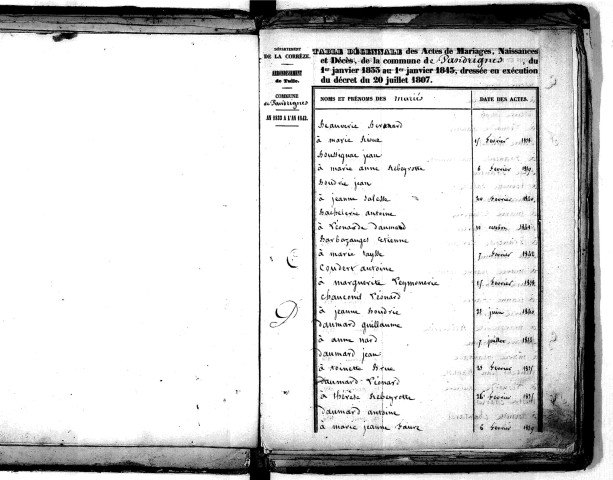 DÉPARTEMENT
DE LA CORRÈZE.
ARRONDISSEMENT
de Tulle.
COMMUNE
de Pandrignes
AN 1833 A L'AN 1843.
TABLE DÉCENNALE des Actes de Mariages, Naissances
et Décès, de la commune de Pandrignes, du
1er janvier 1833 au 1er janvier 1843, dressée en exécution
du décret du 20 juillet 1807.
NOMS ET PRÉNOMS DES mariés
DATE DES ACTES.
Beauverie Bernard
à marie
15 fevrier
Boussignac jean
à marie anne Rebeyrotte
6 fevrier
Boudrie jean
à jeanne salesse
20 fevrier 1840.
Bachelerie antoine
à Léonarde Daumard
Barbazanges Etienne
à marie
7 fevrier 1842
C
Coudert antoine
à marguerite Veymonerie
15 fevrier
Chaucoux Léonard
à jeanne Boudrie
21 juin 1840
D
Daumard guillaume
à anne nard
7 juillet
Daumard jean
à Toinette Brue
fevrier
Daumard Léonard
à thérèse Rebeyrotte
26 fevrier
Daumard antoine
à marie jeanne faure
6 fevrier